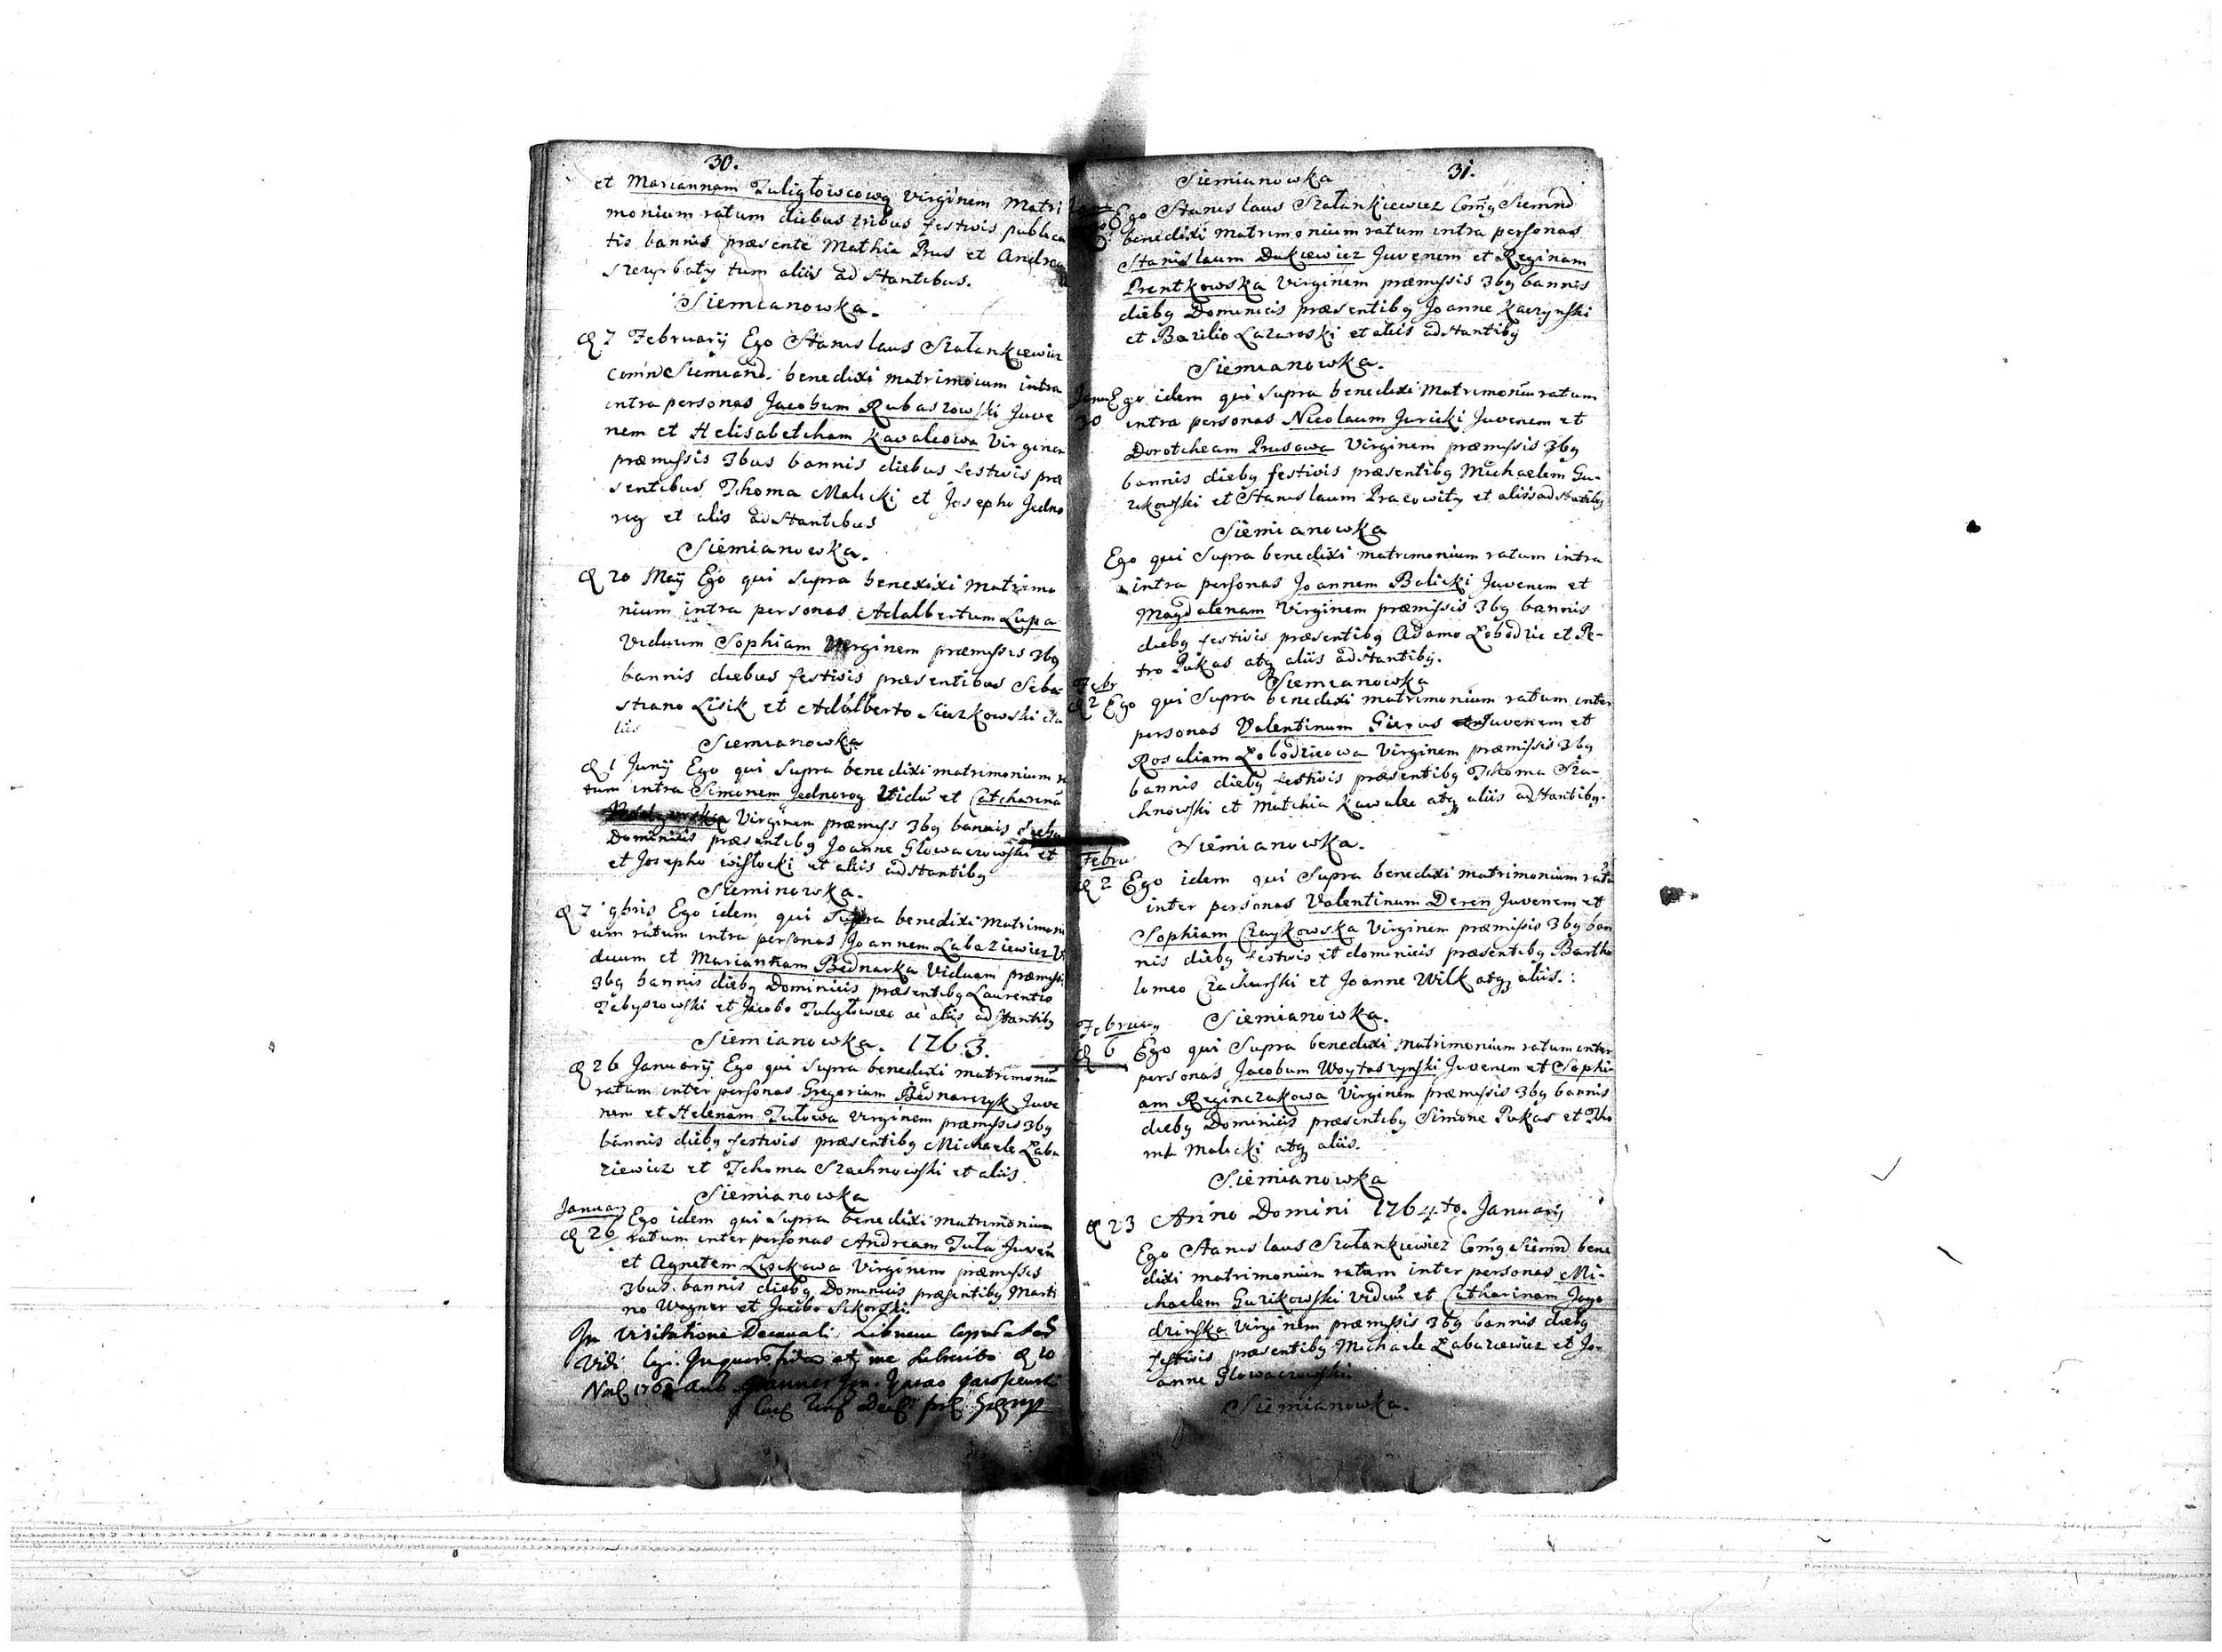 30.
et Mariannam Tuligłowcową Virginem Matri
monium ratum diebus tribus festivis publica
tis bannis præsente Mathia Prus et Andrea
Szczyrbaty tum aliis adstantibus.
Siemianowka.
d 7 February Ego Stanislaus Szałankiewicz
benedixi matrimoium intra
intra personas Jacobum Rubaszowski Juve
nem et Helisabetcham Kavalcowa Virginem
præmissis 3bus bannis diebus festivis præ
sentibus Tchoma Malicki et Josepho Jedno
rog et aliis adstantibus
Siemianowka.
d 20 May Ego qui supra benexixi Matrimo
nium intra personas Adalbertum Lupa
Viduum Sophiam Virginem præmissis 3bg
bannis diebus festivis præsentibus Seba
stiano Lisik et Adalberto Siezkowski
liis
Siemianowka
d 1 Juny Ego qui supra benedixi matrimonium ra
tum intra Simonem Jednorog Vidū et Catcharinā
Virginem præmiss 3bg bannis diebg
Dominicis præsentibg Joanne Glowaczowski et
et Josepho Wisłocki et aliis adstantibg
Sieminowka.
d 7 9bris Ego idem qui Supra benedixi Matrimoni
um ratum intra personas Joannem Labaziewicz Vi
duum et Mariannam Bednarka Viduam præmissi
3bg bannis diebg Dominicis præsentibg Laurentio
et Jacobo Tuligłowiec ac aliis adstantibg
Siemianowka. 1763.
d 26 January Ego qui Supra benedixi matrimoniū
ratum inter personas Gregorium Bednarczyk Juve
nem et Helenam Tułowa virginem præmissis 3bg
bannis diebg festivis præsentibg Michaele Laba
ziewicz et Tchoma Szachnowski et aliis
Siemianowka
Januar
d 26 Ego idem qui supra benedixi matrimonium
ratum inter personas Andream Tuła Juvenē
et Agnetem Lisikowa Virginem præmissis
3bus bannis diebg Dominicis præsentibg Marti
no Wagner et Jacobo Sikorski
In Visitatione Decanali Librum
Vidi d 10
31.
Siemianowka
Ego Stanislaus Szałankiewicz Comg Siemnd
benedixi matrimonium ratum intra personas
Stanislaum Dukiewicz Juvenem et Reginam
Prentkowska Virginem præmissis 3bg bannis
diebg Dominicis præsentibg Joanne Kaczynski
et Bazilio Lazaroski et aliis adstantibg
Siemianowka.
Janu Ego idem qui supra benedixi Matrimoniū ratum
30 intra personas Nicolaum Juricki Juvenem et
Dorotcheam Prusowa Virginem præmissis 3bg
bannis diebg festivis præsentibg Michaelem Gu-
zikowski et Stanislaum Pracowity et aliis adstatibg
Siemianowka
Ego qui Supra benedixi matrimonium ratum intra
intra personas Joannem Balicki Juvenem et
Magdalenam Virginem præmissis 3bg bannis
diebg festivis præsentibg Adamo Lobodzic et Pe-
tro Pukas atq aliis adstantibg.
Siemianowka
Febr
d 2 Ego qui Supra benedixi matrimonium ratum inter
personas Valentinum Gierus Juvenem et
Rosaliam Lobodzicowa Virginem præmissis 3bg
bannis diebg festivis præsentibg Tchoma Sza-
chnowski et Matchia Kawalec atq aliis adstantibg.
Siemianowka.
Febru
d 2 Ego idem qui Supra benedixi matrimonium ratū
inter personas Valentinum Deren Juvenem et
Sophiam Czaykowska Virginem præmissis 3bg ban
nis diebg festivis et dominicis præsentibg Bartho
lomeo Czachurski et Joanne Wilk atq aliis.
Siemianowka.
Februay
d 6 Ego qui Supra benedixi Matrimonium ratum inter
personas Jacobum Woytaszynski Juvenem et Sophi
am Reginczakowa Virginem præmissis 3bg bannis
diebg Dominicis præsentibg Simone Pukas et Tho
ma Malicki atq aliis.
Siemianowka
d 23 Anno Domini 1764to. January
Ego Stanislaus Szałankiewicz Comg Siemnd bene
dixi matrimonium ratum inter personas Mi-
chaelem Guzikowski Viduū et Catharinam Jago
dzinska Virginem præmissis 3bg bannis diebg
festivis præsentibg Michaele Labaziewicz et Jo-
anne Glowaczowski
Siemianowka.